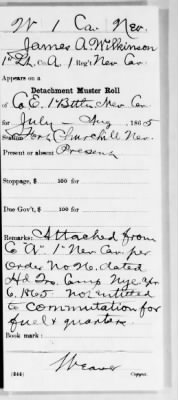 W | 1 | Cav. | Nev.
James A. Wilkinson
1" Lt., Co. A, 1 Reg't Nev. Cav.
Appears on a
Detachment Muster Roll
of Co. E, 1 Batt'n Nev. Cav.
for July - Aug, 1865
Station Fort Churchill Nev.
Present or absent Present
Stoppage, $ 100 for
Due Gov't, $ 100 for
Remarks: Attached from
Co "A" 1" Nev. Cav. per
Order No 26, dated
Hd Qrs. Camp Nye. Apr
6, 1865 Not entitled
to commutation for
fuel & quarters.
Book mark:
Weaver
(344) Copyist.